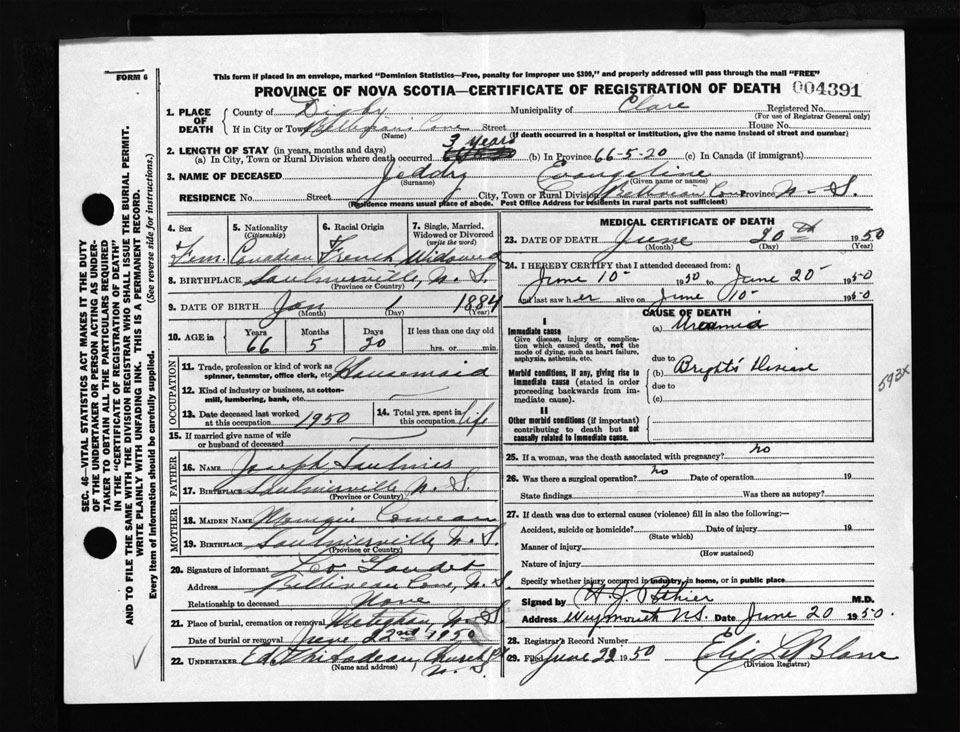 FORM 6
This form if placed in an envelope, marked "Dominion Statistics—Free, penalty for improper use $300," and properly addressed will pass through the mail "FREE"
PROVINCE OF NOVA SCOTIA—CERTIFICATE OF REGISTRATION OF DEATH 004391
1. PLACE OF DEATH County of Digby Municipality of Clare Registered No.
(For use of Registrar General only)
If in City or Town Cove Street House No.
(Name) (If death occurred in a hospital or institution, give the name instead of street and number)
2. LENGTH OF STAY (in years, months and days) 3 years
(a) In City, Town or Rural Division where death occurred (b) In Province 66-5-20 (c) In Canada (if immigrant)
3. NAME OF DECEASED Jeddry Evangeline
(Surname) (Given name or names)
RESIDENCE No. Street City, Town or Rural Division Cove Province N. S.
(Residence means usual place of abode. Post Office Address for residents in rural parts not sufficient)
4. Sex 5. Nationality 6. Racial Origin 7. Single, Married, Widowed or Divorced
(Citizenship) (write the word)
Fem. Canadian French Widowed
8. BIRTHPLACE Saulnierville, N. S.
(Province or Country)
9. DATE OF BIRTH Jan 1 1884
(Month) (Day) (Year)
10. AGE in Years Months Days If less than one day old
66 5 20 hrs. or min.
OCCUPATION
11. Trade, profession or kind of work as spinner, teamster, office clerk, etc. Housemaid
12. Kind of industry or business, as cotton-mill, lumbering, bank, etc.
13. Date deceased last worked at this occupation 1950 14. Total yrs. spent in this occupation life
15. If married give name of wife or husband of deceased
FATHER
16. NAME Joseph Saulnier
17. BIRTHPLACE Saulnierville N. S.
(Province or Country)
MOTHER
18. MAIDEN NAME Comeau
19. BIRTHPLACE Saulnierville, N. S.
(Province or Country)
20. Signature of informant Leo Gaudet
Address Cove, N. S.
Relationship to deceased None
21. Place of burial, cremation or removal Meteghan N S
Date of burial or removal June 22nd 1950
22. UNDERTAKER Ed. Thibodeau, Church Pt
(Name and address) N. S.
MEDICAL CERTIFICATE OF DEATH
23. DATE OF DEATH June 20th 1950
(Month) (Day) (Year)
24. I HEREBY CERTIFY that I attended deceased from:
June 10 1950 to June 20 1950
and last saw her alive on June 10 1950
CAUSE OF DEATH
I
Immediate cause (a) Uraemia
Give disease, injury or complication which caused death, not the mode of dying, such as heart failure, asphyxia, asthenia, etc.
due to
Morbid conditions, if any, giving rise to immediate cause (stated in order proceeding backwards from immediate cause). (b) Bright's Disease
due to
(c)
593X
II
Other morbid conditions (if important) contributing to death but not causally related to immediate cause.
25. If a woman, was the death associated with pregnancy? no
26. Was there a surgical operation? no Date of operation 19
State findings Was there an autopsy?
27. If death was due to external causes (violence) fill in also the following:—
Accident, suicide or homicide? Date of injury 19
(State which)
Manner of injury
(How sustained)
Nature of injury
Specify whether injury occurred in industry, in home, or in public place
Signed by H. J. Pothier M.D.
Address Weymouth N.S. Date June 20 1950.
28. Registrar's Record Number
29. Filed June 22 1950 Elie LeBlanc
(Division Registrar)
SEC. 46—VITAL STATISTICS ACT MAKES IT THE DUTY
OF THE UNDERTAKER OR PERSON ACTING AS UNDER-
TAKER TO OBTAIN ALL THE PARTICULARS REQUIRED
IN THE "CERTIFICATE OF REGISTRATION OF DEATH"
AND TO FILE THE SAME WITH THE DIVISION REGISTRAR WHO SHALL ISSUE THE BURIAL PERMIT.
WRITE PLAINLY WITH UNFADING INK. THIS IS A PERMANENT RECORD.
Every item of information should be carefully supplied. (See reverse side for instructions.)